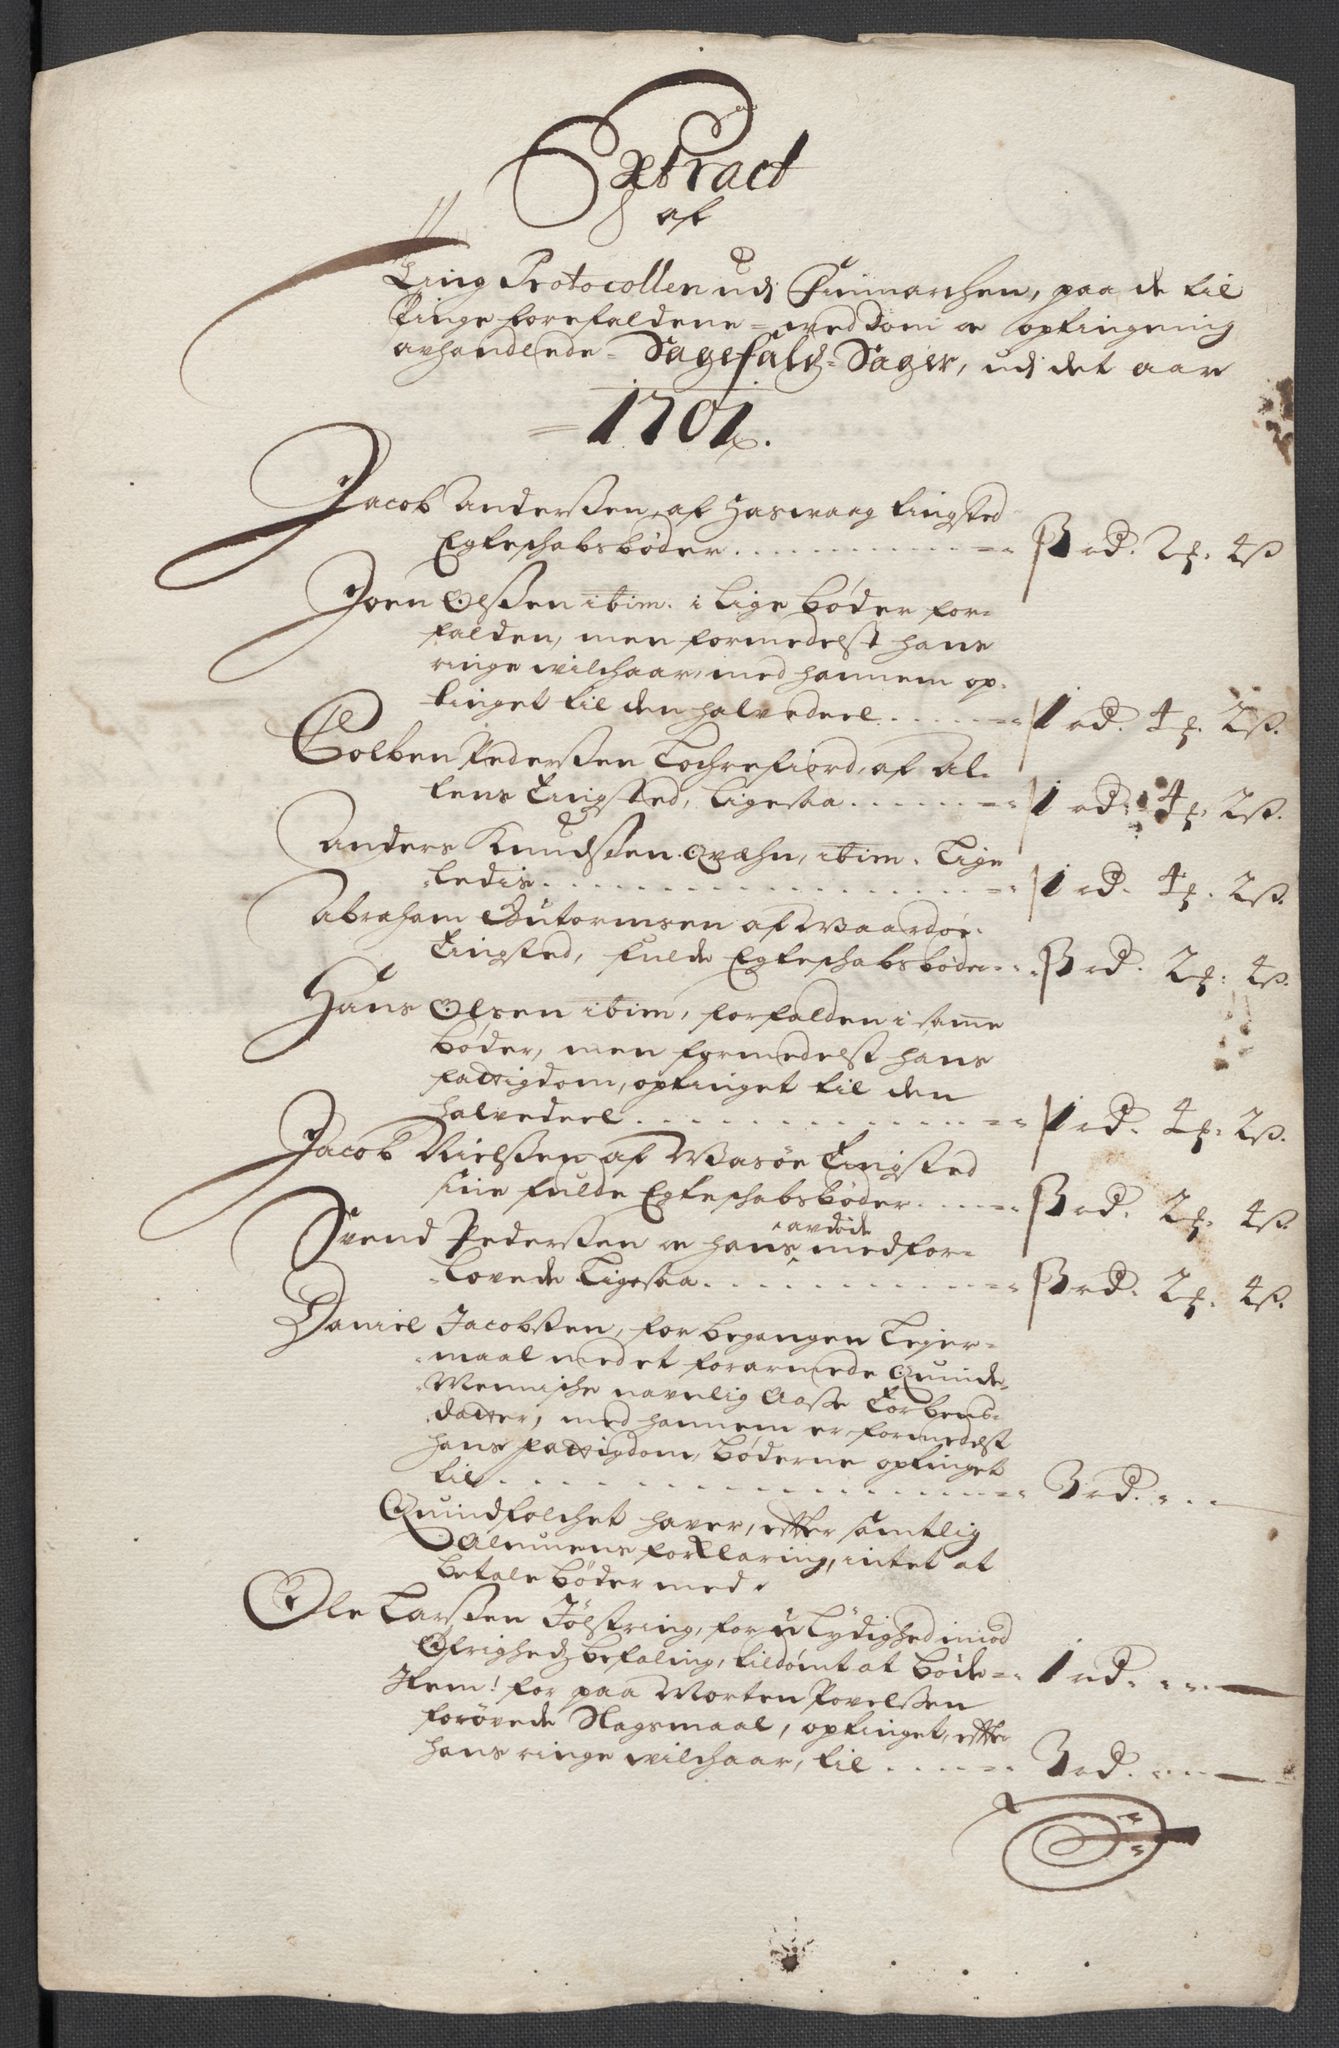 Extract
af
Ting Protocollen udj Finmarchen, paa de til
Tinge forefaldene = ved dom og optingning
avhandlede = Sagefalds = Sager, udj det aar
= 1701.
Jacob Anderssen, af Hasvaag tingsted
Egteschabsbøder . . . . . 3 rd. 2 . 4 ß
Joen Olssen ibim. i lige bøder for=
falden, men formedelst hans
ringe vilchaar, med hannem op=
tinget til den halvedeel . . . . . 1 rd. 4 . 2 ß.
Tolben Pederssen Lochrefiord, af Al=
tens Tingsted, ligesaa . . . . . 1 rd. 4 . 2 ß.
Anders Knudssen Qvæhn, ibim. lige
=ledis . . . . . 1 rd. 4 . 2 ß.
Abraham Gutormsen af Waardøe
Tingsted, fulde Egteschabsbøder . . . 3 rd. 2 . 4 ß.
Hans Olsen ibim, forfalden i same
bøder, men formedelst hans
fattigdom, optinget til den
halvedeel . . . . . 1 rd. 4 . 2 ß.
Jacob Nielssen af Wasøe Tingsted
sine fulde Egteschabsbøder . . . . . 3 rd. 2 . 4 ß
Svend Pederssen og hans avdøde medfor=
=lovede ligesaa . . . . . 3 rd. 2 . 4 ß.
Daniel Jacobssen, for begangen Lejer=
=maal med et forarmede Quinde=
=Mennische navnlig Aasse Torbens=
=datter, med hannem er formedelst
hans fattigdom, bøderne optinget
til . . . . . 3 rd. . . .
Quindfolchet haver, efter samtlig
Almuens forklaring, intet at
betale bøder med.
Ole Larssen Jølstring, for ulydighed imod
Øfrigheds befaling, tildømt at bøde = 1 rd. . . .
Item! for paa Morten Povelssen
forøvede Slagsmaal, optinget, efter
hans ringe vilchaar, til . . . . . 3 rd. . . .